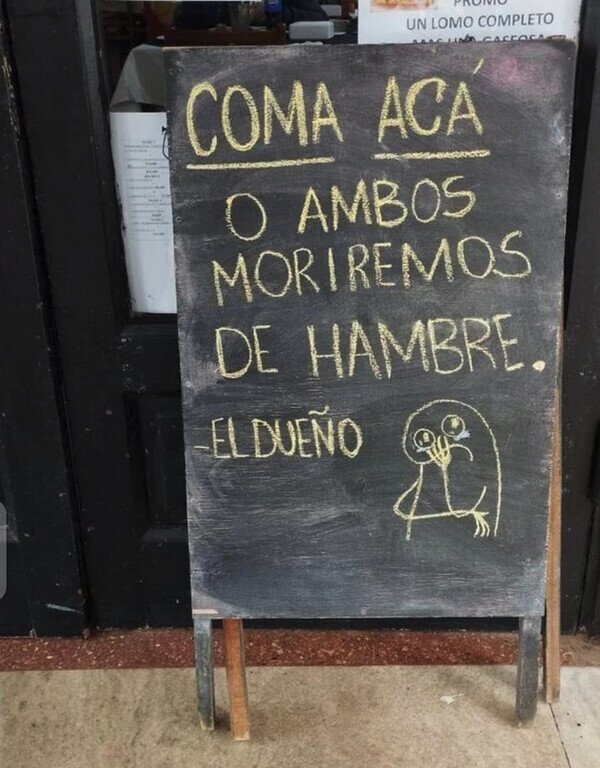 PROMO
UN LOMO COMPLETO
MAS UNA GASEOSA
COMA ACÁ
O AMBOS
MORIREMOS
DE HAMBRE.
-EL DUEÑO